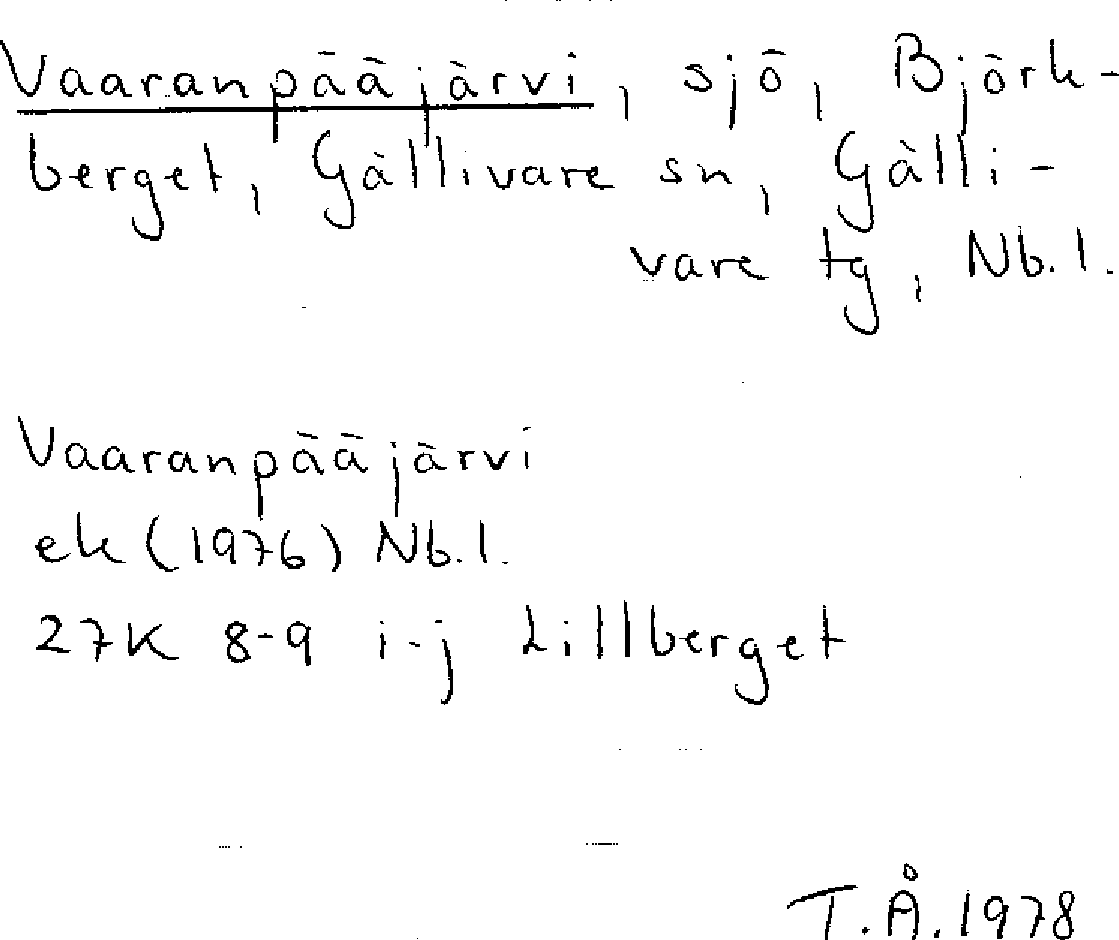 Vaaranpääjärvi, sjö, Björk-
berget, Gällivare sn, Gälli-
vare tg, Nb.l.
Vaaranpääjärvi
ek (1976) Nb.l.
27K 8-9 i-j Lillberget
T.Å.1978